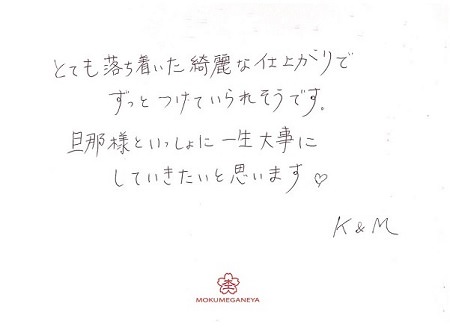 とても落ち着いた綺麗な仕上がりで
ずっとつけていられそうです。
旦那様といっしょに一生大事に
していきたいと思います♡
K & M
MOKUMEGANEYA